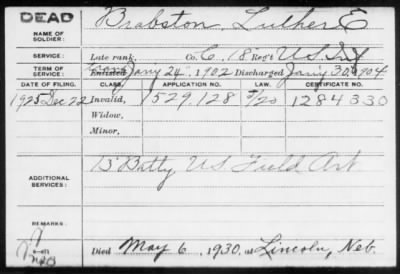 DEAD
NAME OF SOLDIER: Brabston, Luther E
SERVICE: Late rank, Co. C, 18 Reg't U.S. Inf
TERM OF SERVICE: Enlisted Jan'y 24", 1902 Discharged Jan'y 30, 1904
DATE OF FILING. CLASS. APPLICATION NO. LAW. CERTIFICATE NO.
1925 Dec 22 Invalid, 1529.128 9/20 1284330
Widow,
Minor,
ADDITIONAL SERVICES: B" Batty, U.S. Field Art
REMARKS:
Died May 6, 1930, at Lincoln, Neb.